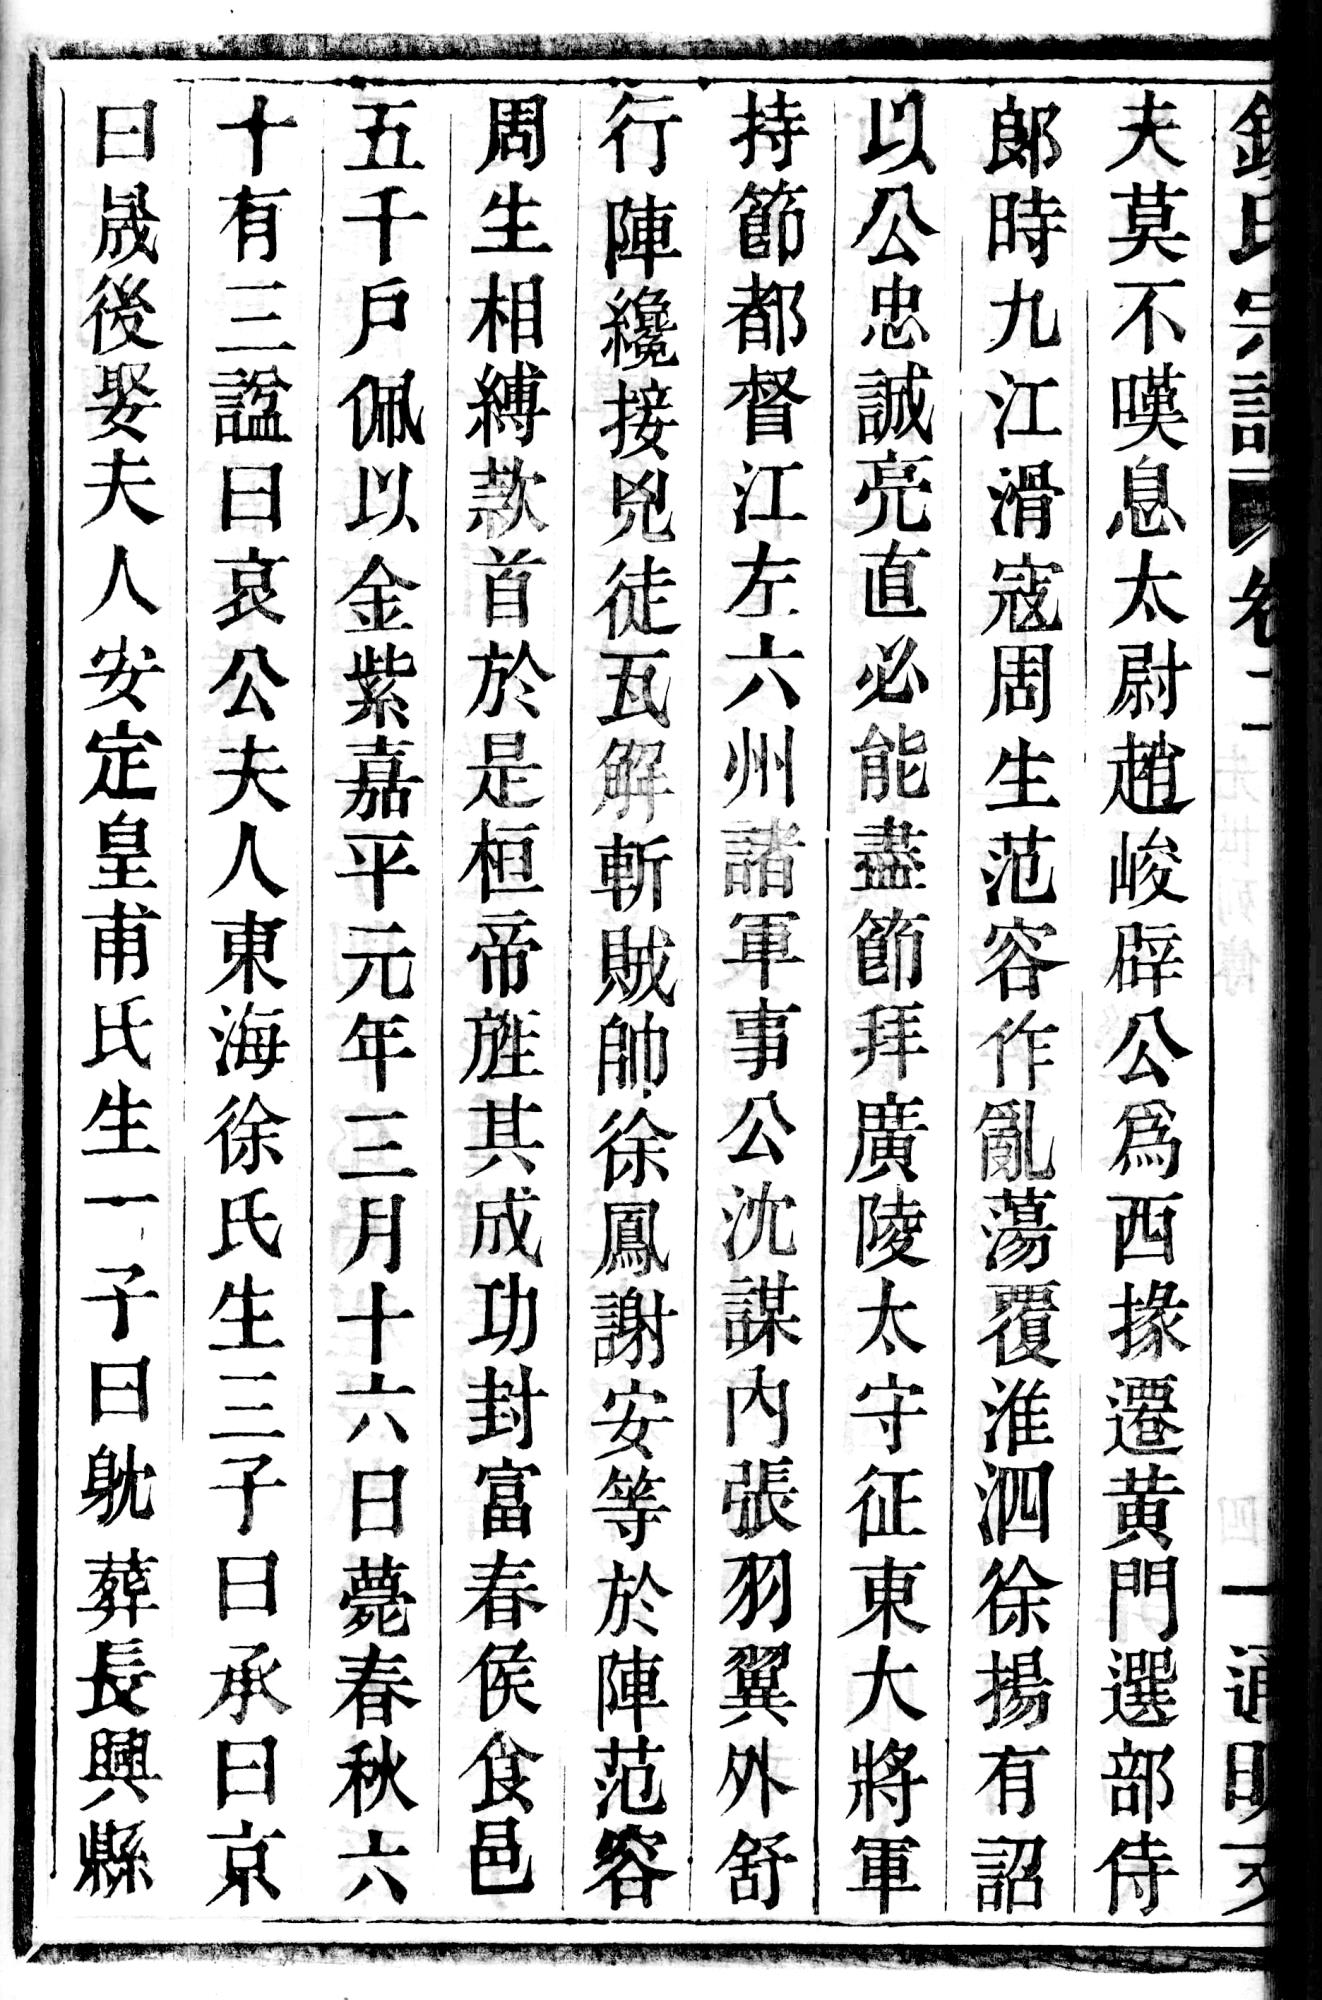 錢氏宗譜 卷二 一 通明
夫莫不嘆息太尉趙峻辟公爲西掾遷黄門選部侍
郎時九江滑寇周生范容作亂蕩覆淮泗徐揚有詔
以公忠誠亮直必能盡節拜廣陵太守征東大將軍
持節都督江左六州諸軍事公沈謀内張羽翼外舒
行陣纔接兇徒瓦解斬賊帥徐鳳謝安等於陣范容
周生相縛款首於是桓帝旌其成功封富春侯食邑
五千戶佩以金紫嘉平元年三月十六日薨春秋六
十有三諡曰哀公夫人東海徐氏生三子曰承曰京
曰晟後娶夫人安定皇甫氏生一子曰躭葬長興縣